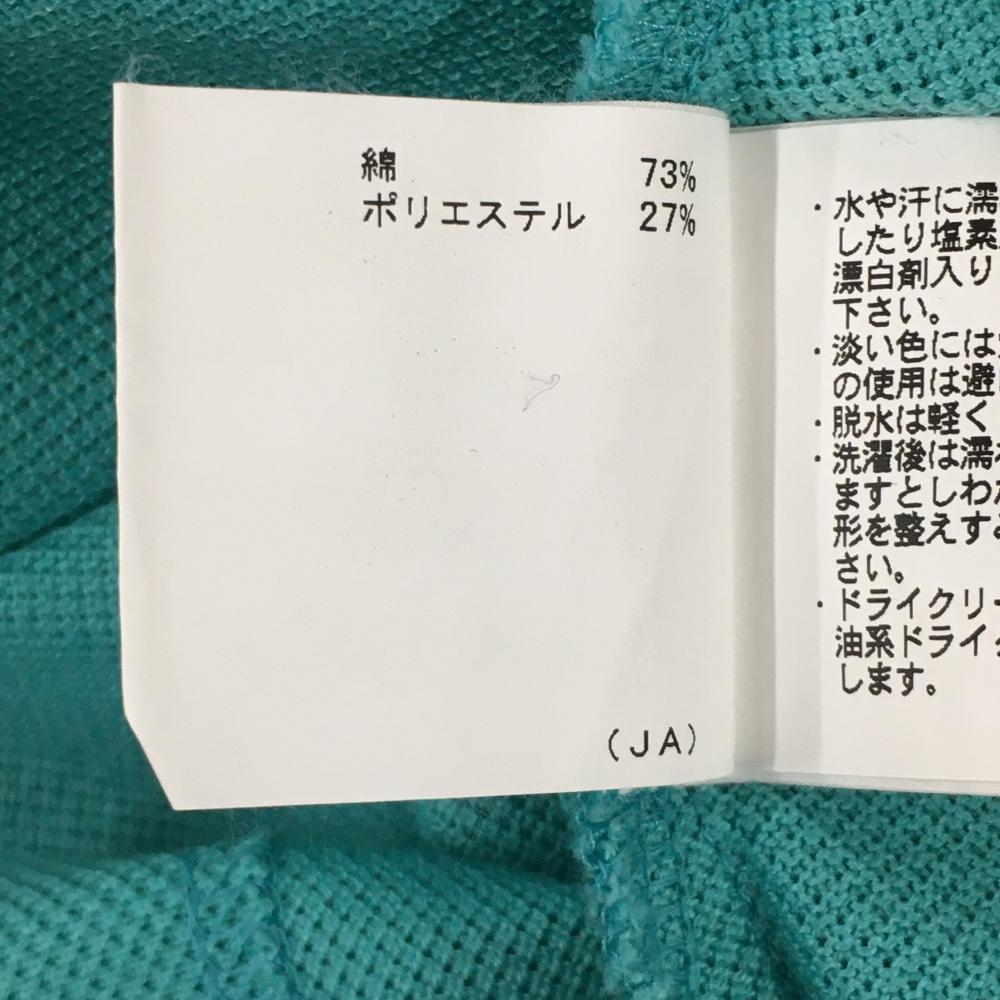 綿 73%
ポリエステル 27%
(JA)
・水や汗に濡
したり塩素
漂白剤入り
下さい。
・淡い色には
の使用は避
・脱水は軽く
・洗濯後は濡
ますとしわ
形を整えす
さい。
・ドライクリー
油系ドライ
します。